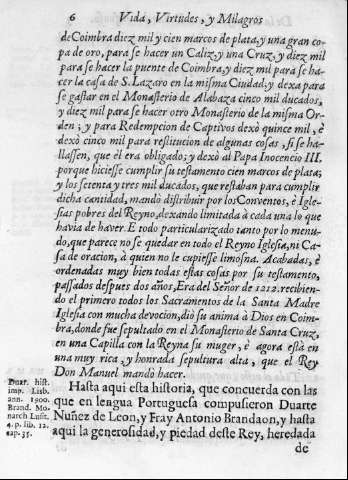 6 Vida, Virtudes, y Milagros
de Coimbra diez mil y cien marcos de plata, y una gran co-
pa de oro, para se hacer un Caliz, y una Cruz, y diez mil
para se hacer la puente de Coimbra, y diez mil para se ha-
cer la casa de S. Lazaro en la misma Ciudad, y dexa para
se gastar en el Monasterio de Alabaza cinco mil ducados,
y diez mil para se hacer otro Monasterio de la misma Or-
den; y para Redempcion de Captivos dexò quince mil, è
dexò cinco mil para restitucion de algunas cosas, si se ha-
llassen, que èl era obligado; y dexò al Papa Inocencio III.
porque hiciesse cumplir su testamento cien marcos de plata;
y los setenta y tres mil ducados, que restaban para cumplir
dicha cantidad, mandò distribuir por los Conventos, è Igle-
sias pobres del Reyno, dexando limitada à cada una lo que
havia de haver. E todo particularizado tanto por lo menu-
do, que parece no se quedar en todo el Reyno Iglesia, ni Ca-
sa de oracion, à quien no le cupiesse limosna. Acabadas, è
ordenadas muy bien todas estas cosas por su testamento,
passados despues dos años, Era del Señor de 1212. recibien-
do el primero todos los Sacramentos de la Santa Madre
Iglesia con mucha devocion, diò su anima à Dios en Coim-
bra, donde fue sepultado en el Monasterio de Santa Cruz,
en una Capilla con la Reyna su muger, è agora està en
una muy rica, y honrada sepultura alta, que el Rey
Don Manuel mandò hacer.
Duar. hist.
imp. Lisb.
ann. 1900.
Brand. Mo-
narch Lusit.
4. p. lib. 12.
cap. 35.
Hasta aqui esta historia, que concuerda con las
que en lengua Portuguesa compusieron Duarte
Nuñez de Leon, y Fray Antonio Brandaon, y hasta
aqui la generosidad, y piedad deste Rey, heredada
de